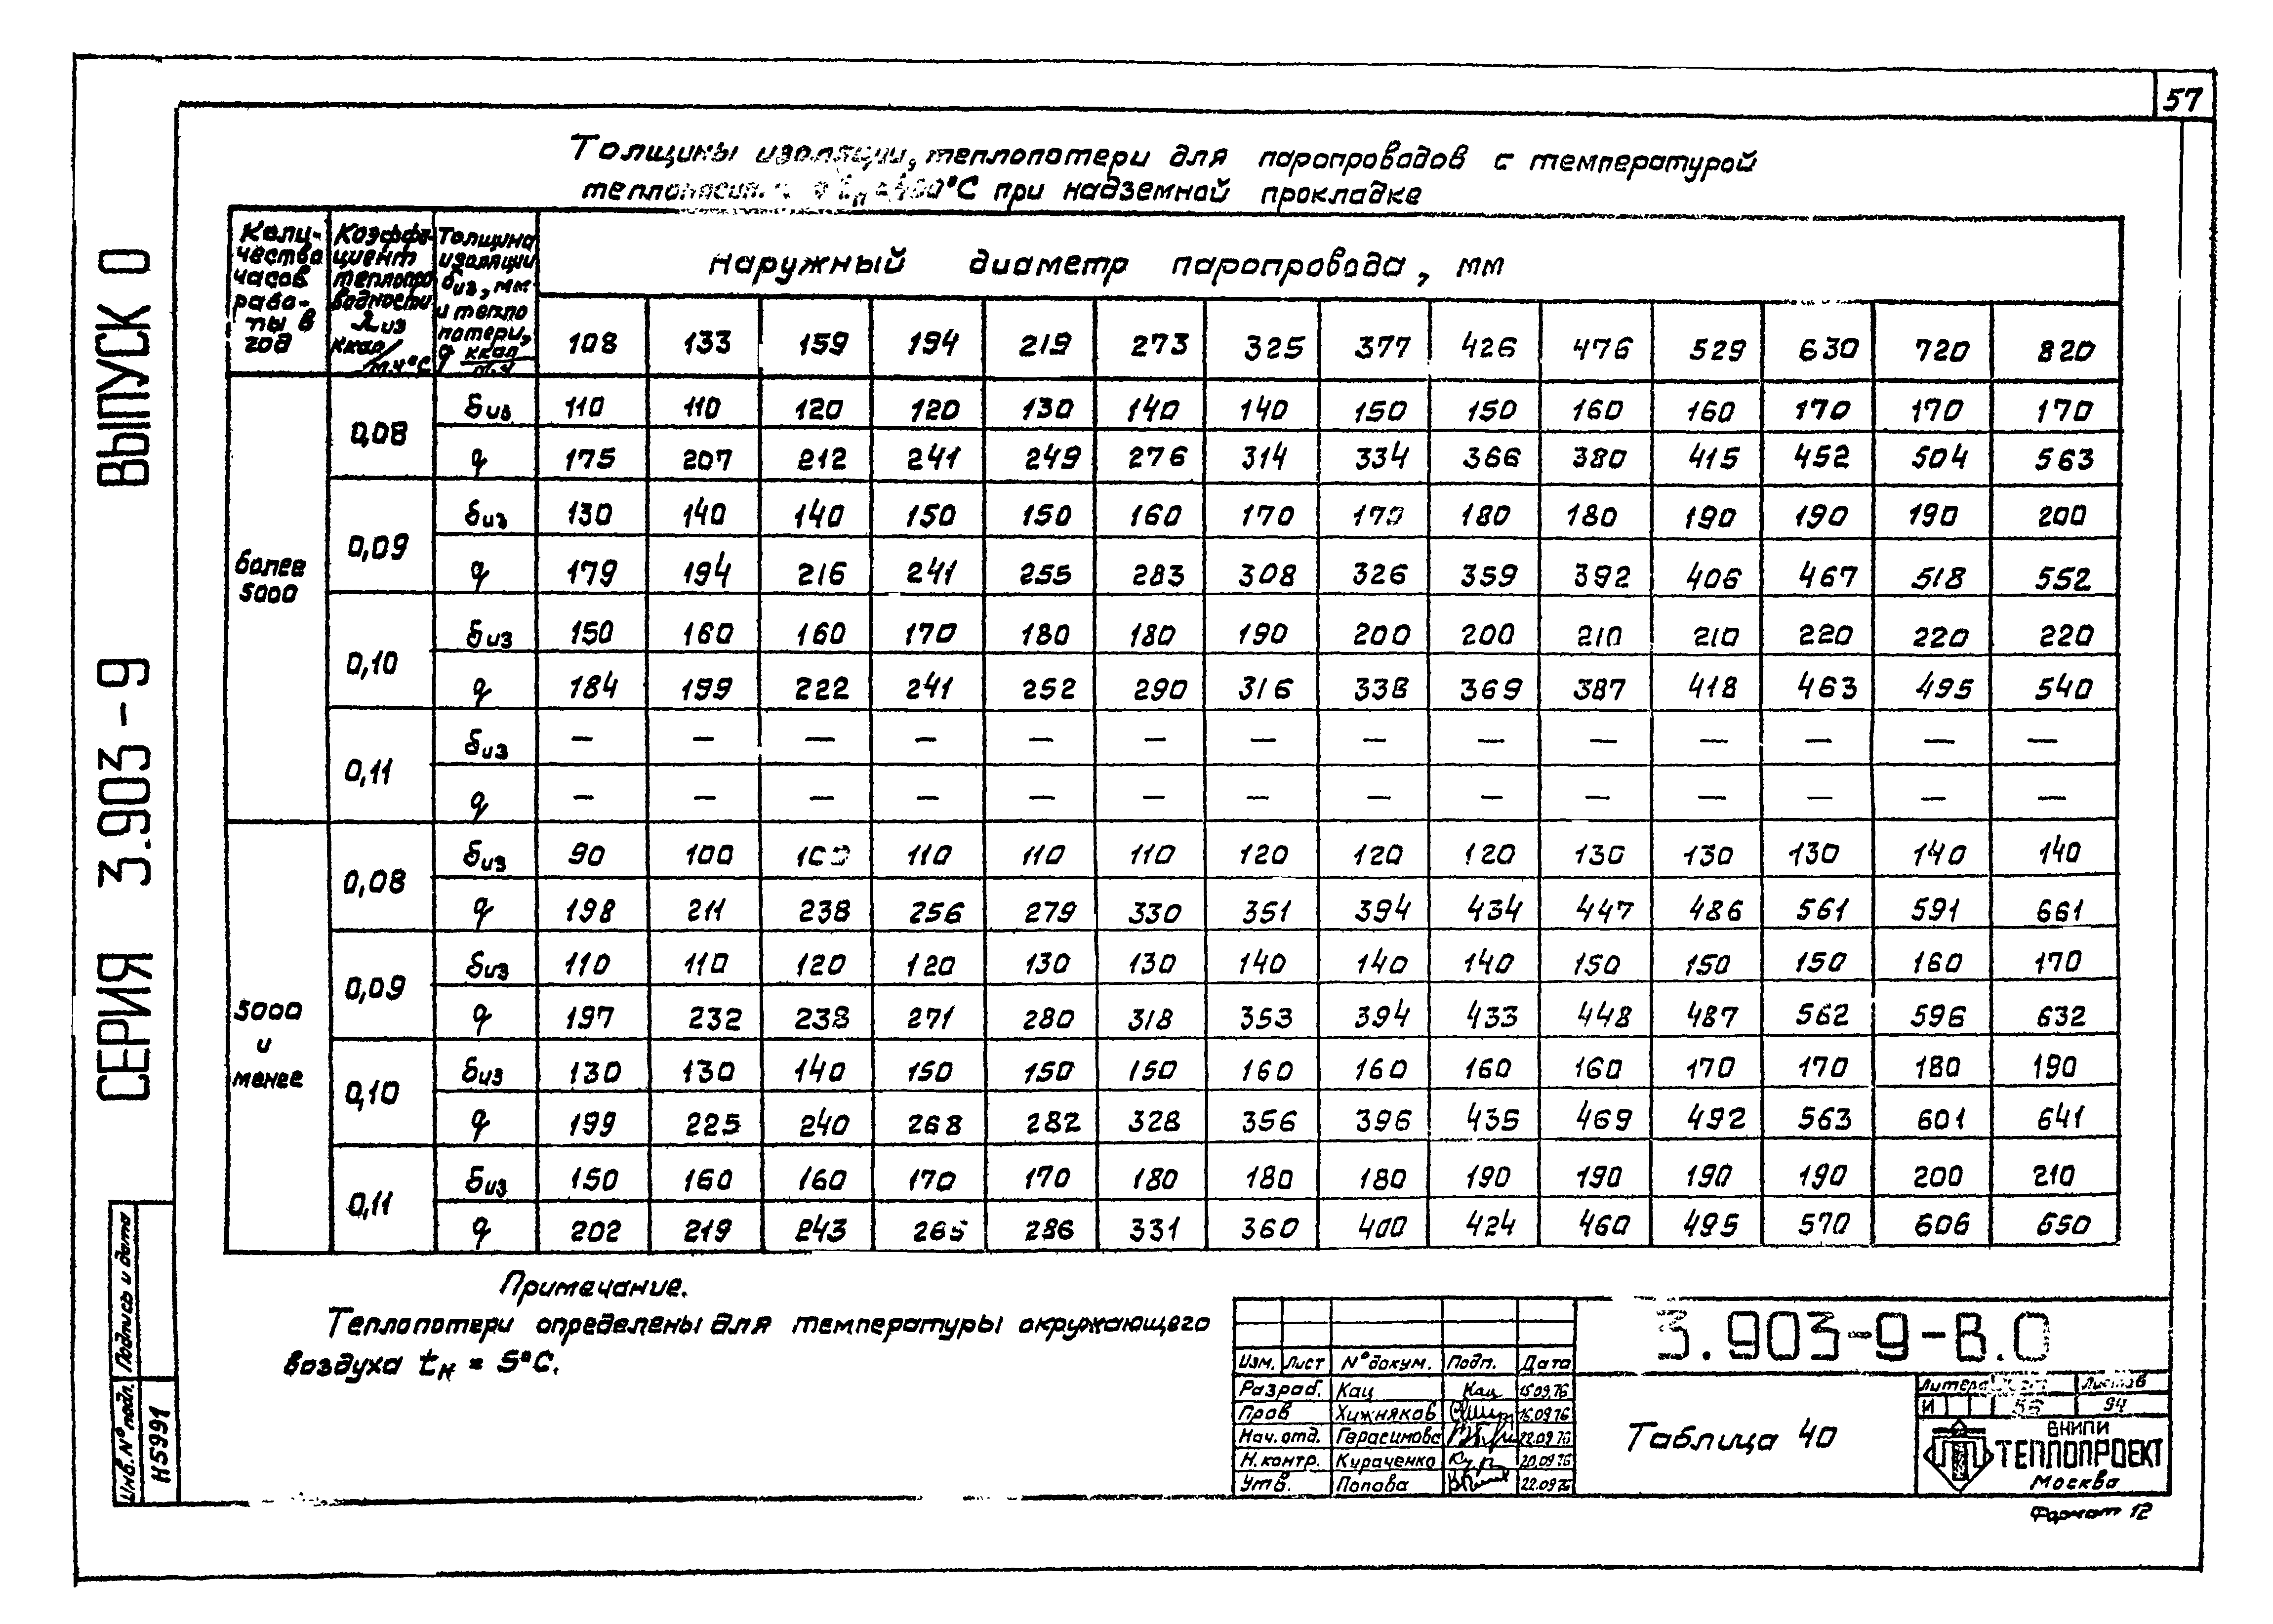 57
Толщины изоляции, теплопотери для паропроводов с температурой
°С при надземной прокладке
Коли-чества часов рабо-ты в год | Коэффи-циент теплопро водности λиз ккал/м.ч°С | Толщина изоляции δиз, мм и тепло потери, q ккал/м.ч | наружный диаметр паропровода, мм
108 133 159 194 219 273 325 377 426 476 529 630 720 820
более 5000
0,08 δиз 110 110 120 120 130 140 140 150 150 160 160 170 170 170
q 175 207 212 241 249 276 314 334 366 380 415 452 504 563
0,09 δиз 130 140 140 150 150 160 170 170 180 180 190 190 190 200
q 179 194 216 241 255 283 308 326 359 392 406 467 518 552
0,10 δиз 150 160 160 170 180 180 190 200 200 210 210 220 220 220
q 184 199 222 241 252 290 316 338 369 387 418 463 495 540
0,11 δиз — — — — — — — — — — — — — —
q — — — — — — — — — — — — — —
5000 и менее
0,08 δиз 90 100 100 110 110 110 120 120 120 130 130 130 140 140
q 198 211 238 256 279 330 351 394 434 447 486 561 591 661
0,09 δиз 110 110 120 120 130 130 140 140 140 150 150 150 160 170
q 197 232 238 271 280 318 353 394 433 448 487 562 596 632
0,10 δиз 130 130 140 150 150 150 160 160 160 160 170 170 180 190
q 199 225 240 268 282 328 356 396 435 469 492 563 601 641
0,11 δиз 150 160 160 170 170 180 180 180 190 190 190 190 200 210
q 202 219 243 265 286 331 360 400 424 460 495 570 606 650
Примечание.
Теплопотери определены для температуры окружающего
воздуха tн = 5°С.
СЕРИЯ 3.903-9 ВЫПУСК 0
Подпись и дата
Инв.№ подл.
Н5991
3.903-9-В.0
Изм. Лист № докум. Подп. Дата
Разраб. Кац Кац 15.09.76
Пров Хижняков 16.09.76
Нач.отд. Герасимова 22.09.76
Н.контр. Кураченко 20.09.76
Утв. Попова 22.09.76
Таблица 40
Литера Лист Листов
И 56 94
ВНИПИ
ТЕПЛОПРОЕКТ
Москва
Формат 12